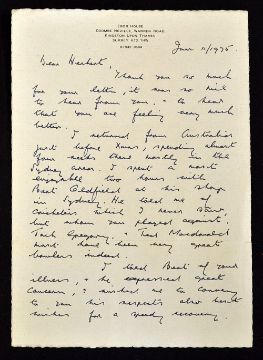 COOMBE NEVILLE, WARREN ROAD
KINGSTON UPON THAMES
SURREY KT2 7HW
Dear Herbert,
Thank you so much
for your letter, it was so nice
to hear from you, & to hear
that you are feeling very much
better.
I returned from Australia
just before Xmas, spending about
four weeks there mostly in the
Sydney area. I spent a most
enjoyable two hours with
Bert Oldfield at his shop
in Sydney. He told me of
cricketers which I never saw,
but whom you played against,
Jack Gregory, Ted Macdonald
must have been very great
bowlers indeed.
I told Bert of your
illness, & he expressed great
concern, & wished me to convey
to you his respects also best
wishes for a speedy recovery.